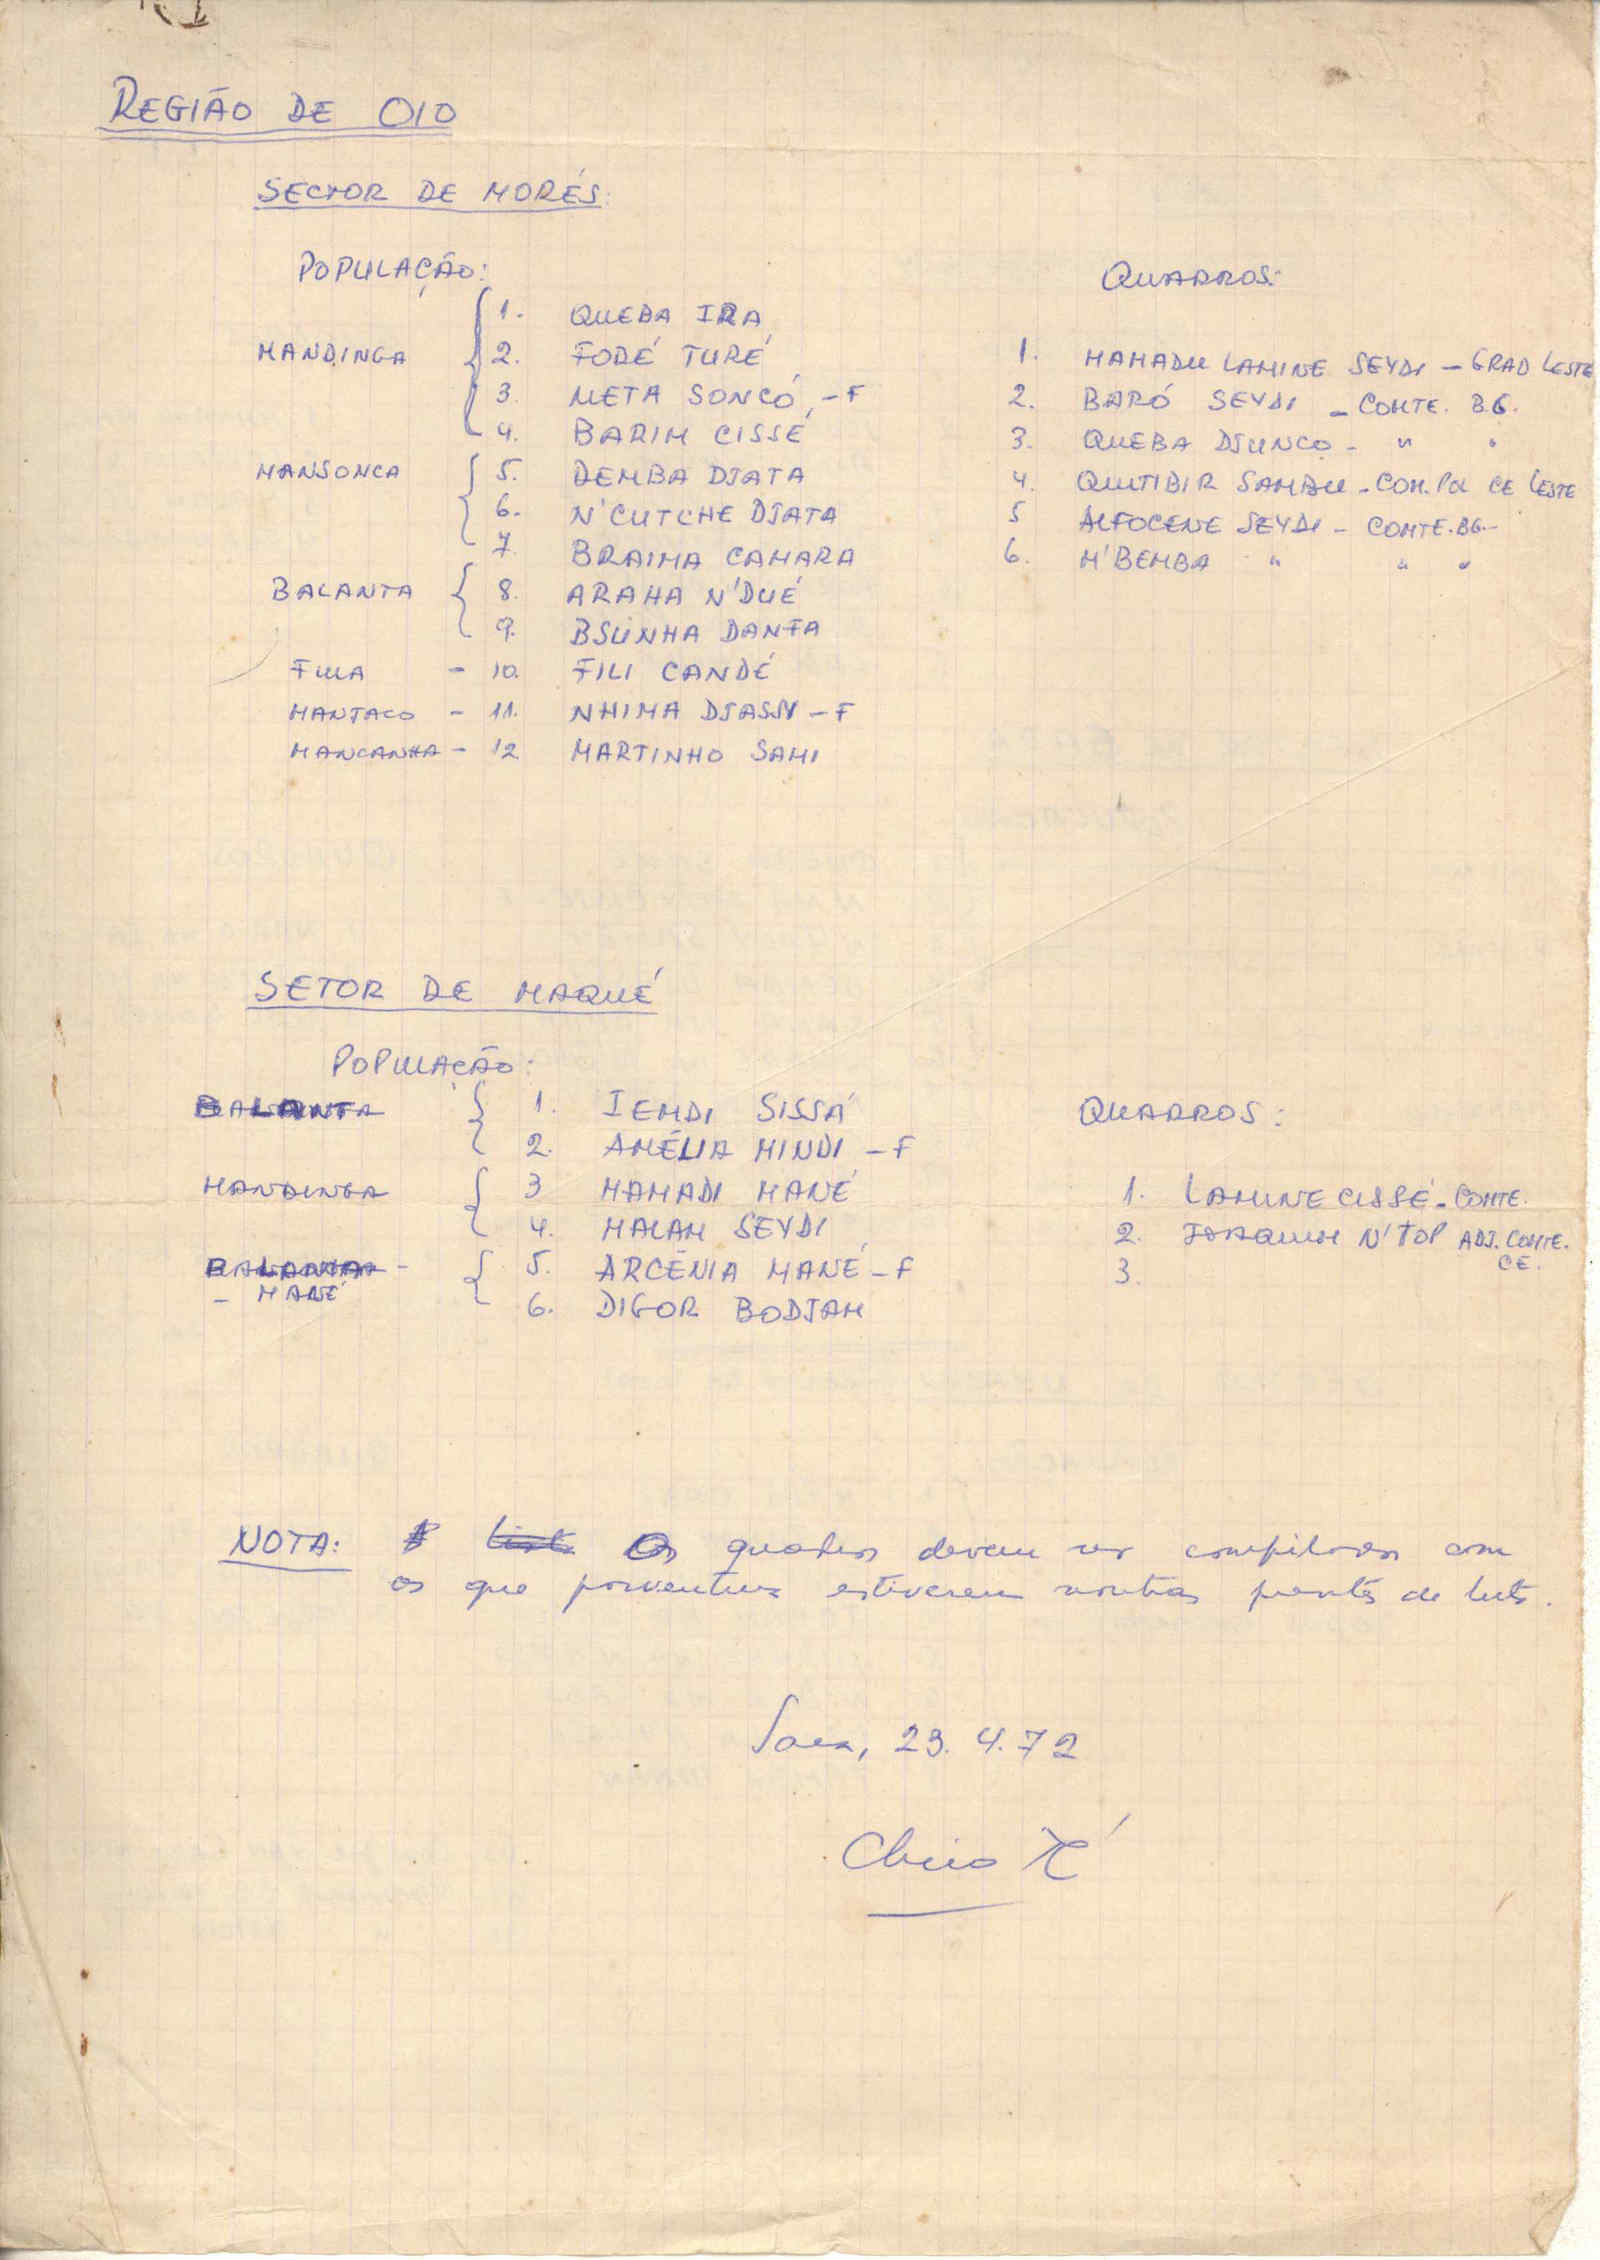 REGIÃO DE OIO
SECTOR DE MORÉS:
POPULAÇÃO:
QUADROS:
1. QUEBA IRA
MANDINGA 2. FODÉ TURÉ
1. MAMADU LAMINE SEYDI - GRAD LESTE
3. META SONCÓ - F
2. BARÓ SEYDI - COMTE. B.G.
4. BARIM CISSÉ
3. QUEBA DJUNCO - " "
MANSONCA 5. DEMBA DJATA
4. QUITIBIR SAMBU - COM. POL CE LESTE
6. N'CUTCHE DJATA
5 ALFOCENE SEYDI - COMTE. BG.-
7. BRAIMA CAMARA
6. M'BEMBA " " "
BALANTA 8. ARAHA N'DUÉ
9. BSUNHA DANFA
FULA - 10. FILI CANDÉ
MANJACO - 11. NHIMA DJASSI - F
MANCANHA - 12 MARTINHO SAMI
SETOR DE MAQUÉ
POPULAÇÃO:
BALANTA 1. IEMDI SISSÁ
QUADROS:
2. AMÉLIA MINDI - F
MANDINGA 3 MAMADI MANÉ
1. LAMINE CISSÉ - COMTE.
4. MALAM SEYDI
2. JOAQUIM N'TOP ADJ. COMTE.
CE.
BALANTA - 5. ARCÉNIA MANÉ - F
3.
- MANÉ
6. DIGOR BODJAM
NOTA: A lista Os quadros devem ser compilados com
os que porventura estiverem noutras frentes de luta.
Sara, 23.4.72
Chico Té